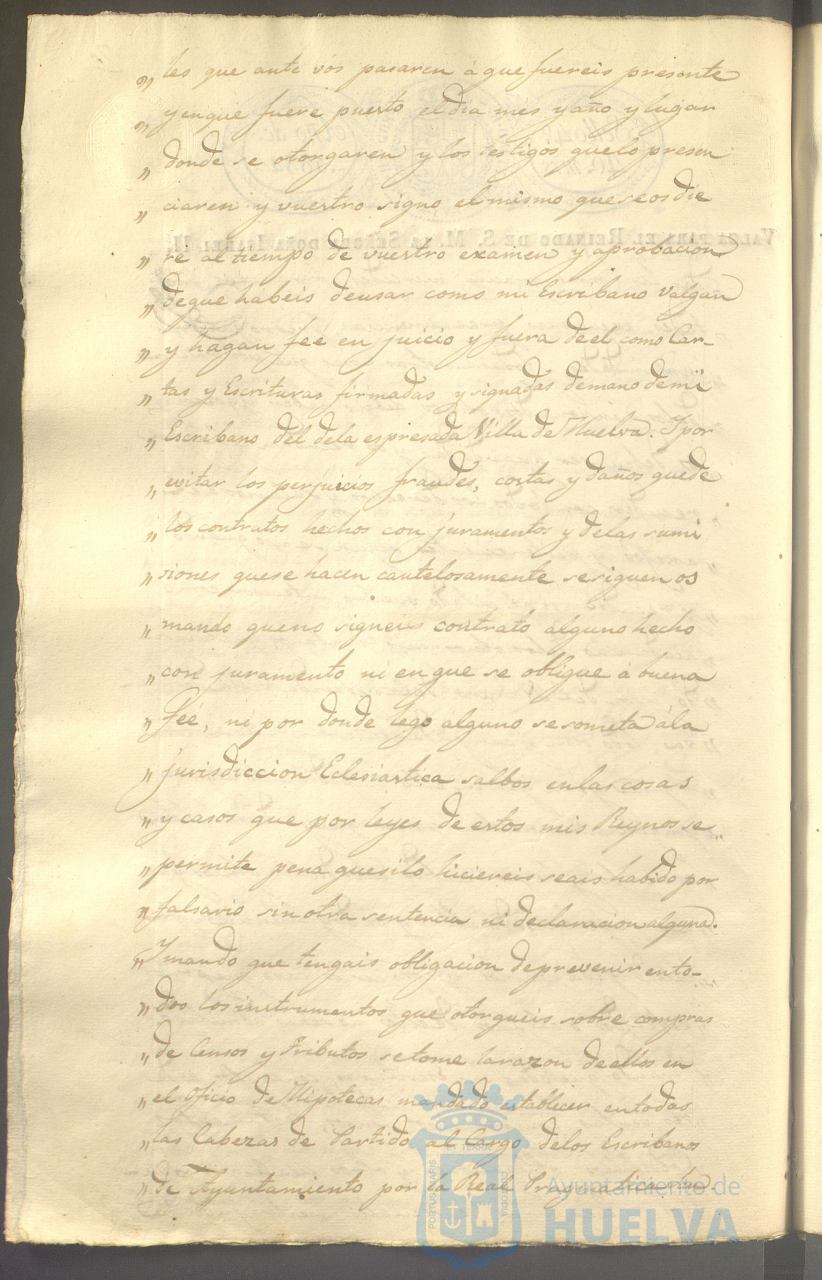 „ les que ante vós pasaren á que fuereis presente
„ y en que fuere puesto el dia mes y año y lugar
„ donde se otorgaren y los testigos que lo presen
„ ciaren y vuestro signo el mismo que se os die
„ re al tiempo de vuestro examen y aprobacion
„ de que habeis de usar como mi Escribano valgan
„ y hagan feé en juicio y fuera de el como Car-
„ tas y Escrituras firmadas y signadas de mano de mi
„ Escribano del de la espresada Villa de Huelva. Y por
„ evitar los perjuicios fraudes, costas y daños que de
„ los contratos hechos con juramentos y de las sumi
„ siones que se hacen cautelosamente se siguen os
„ mando que no signeis contrato alguno hecho
„ con juramento ni en que se obligue á buena
„ feé, ni por donde lego alguno se someta á la
„ jurisdiccion Eclesiastica salbos en las cosas
„ y casos que por leyes de estos mis Reynos se
„ permite pena que si lo hiciereis seais habido por
„ falsario sin otra sentencia ni declaracion alguna.
„ Y mando que tengais obligacion de prevenir en to-
„ dos los instrumentos que otorgueis sobre compras
„ de Censos y tributos se tome la razon de ellos en
„ el Oficio de Hipotecas mandado establecer en todas
„ las Cabezas de Partido al Cargo de los Escribanos
„ de Ayuntamiento por la Real Pragmatica
VALGA PARA EL REINADO DE S. M. LA SEÑORA DOÑA ISABEL II.
PORTUS MARIS ET TERRAE CUSTODIA
Ayuntamiento de
HUELVA